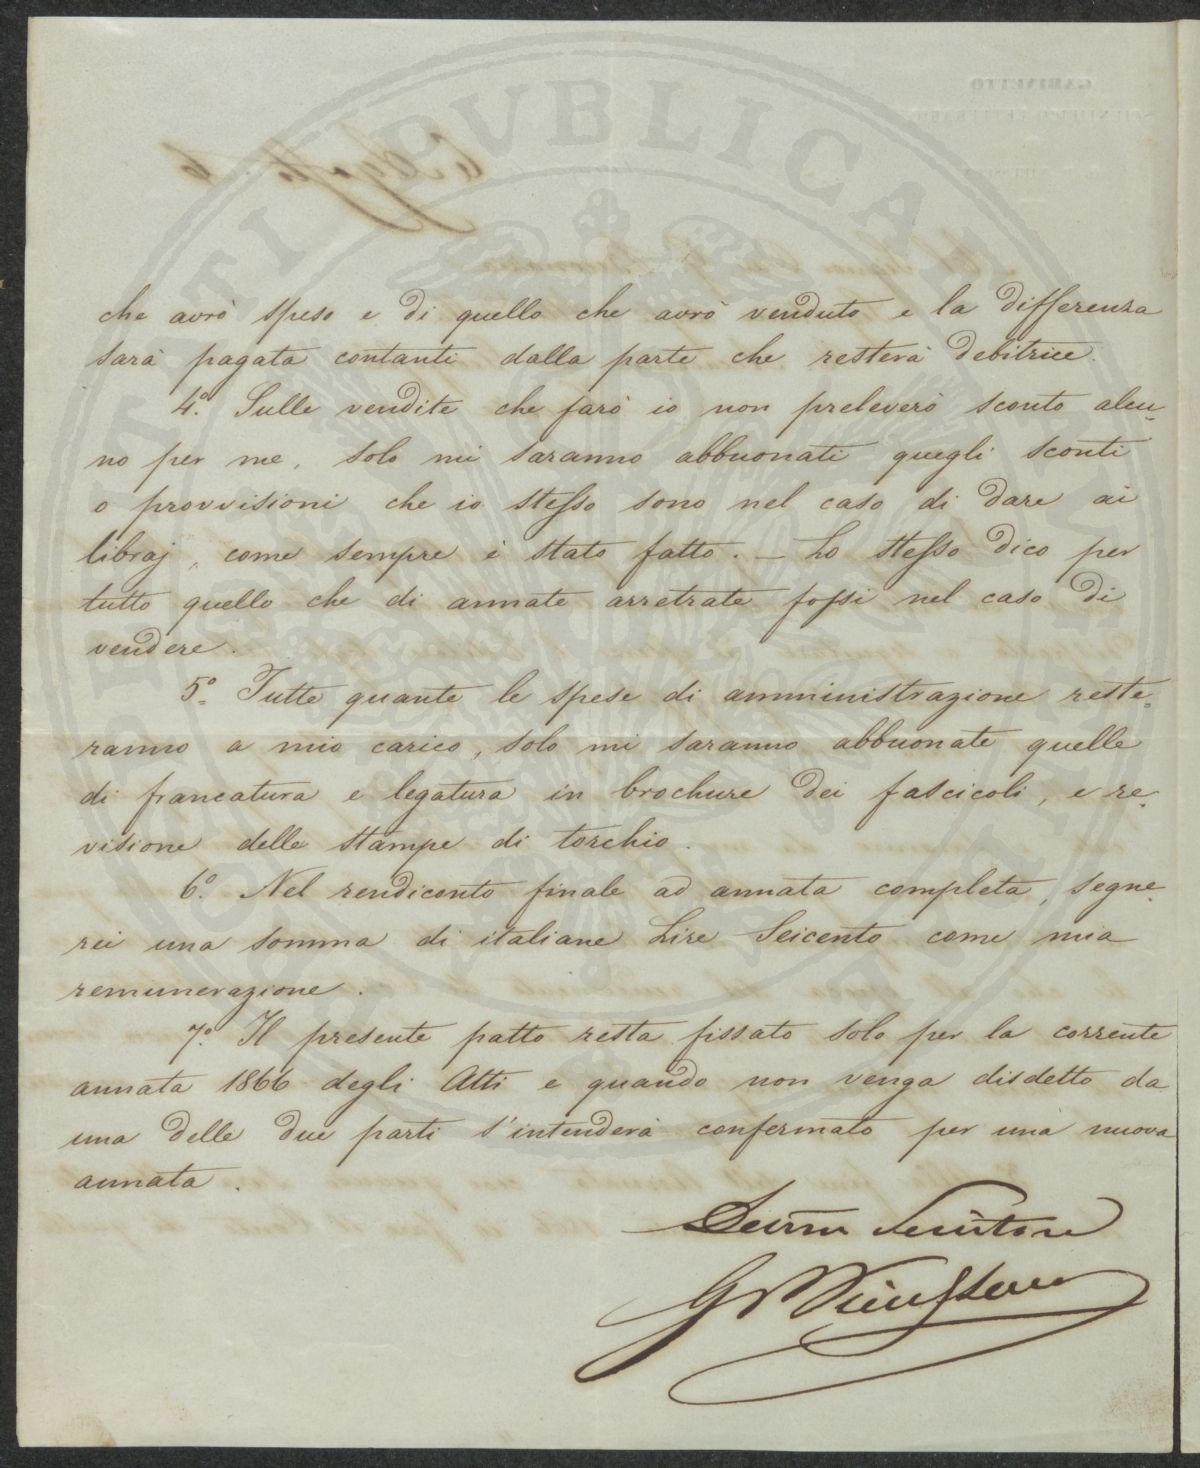 che avrò speso e di quello che avrò venduto e la differenza
sarà pagata contanti dalla parte che resterà debitrice.
4.º Sulle vendite che farò io non preleverò sconto alcu-
no per me, solo mi saranno abbuonati quegli sconti
o provvisioni che io stesso sono nel caso di dare ai
libraj, come sempre è stato fatto. — Lo stesso dico per
tutto quello che di annate arretrate fossi nel caso di
vendere.
5.º Tutte quante le spese di amministrazione reste-
ranno a mio carico, solo mi saranno abbuonate quelle
di francatura e legatura in brochure dei fascicoli, e re-
visione delle stampe di torchio.
6.º Nel rendiconto finale ad annata completa, segne-
rei una somma di italiane Lire Seicento come mia
remunerazione.
7.º Il presente patto resta fissato solo per la corrente
annata 1866 degli Atti e quando non venga disdetto da
una delle due parti s'intenderà confermato per una nuova
annata.
Servitore